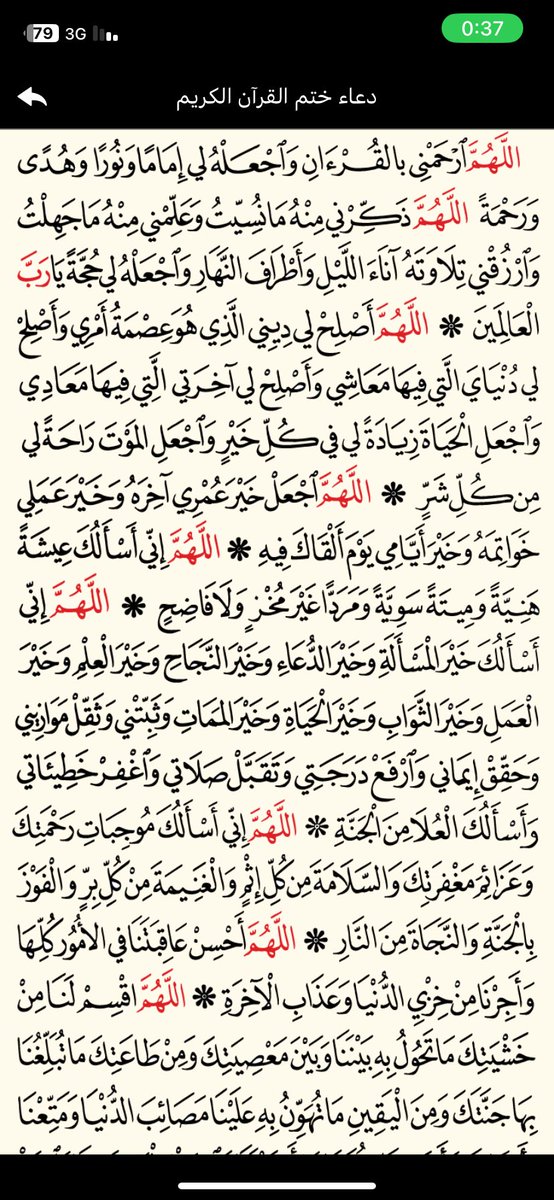 79 3G 0:37
دعاء ختم القرآن الكريم
اللَّهُمَّ ٱرْحَمْنِي بالقُرْءَانِ وَٱجْعَلْهُ لِي إِمَامًا وَنُورًا وَهُدًى
وَرَحْمَةً اللَّهُمَّ ذَكِّرْنِي مِنْهُ مَانُسِّيتُ وَعَلِّمْنِي مِنْهُ مَاجَهِلْتُ
وَٱرْزُقْنِي تِلَاوَتَهُ آنَاءَ اللَّيْلِ وَأَطْرَافَ النَّهَارِ وَٱجْعَلْهُ لِي حُجَّةً يَا رَبَّ
الْعَالَمِينَ ❋ اللَّهُمَّ أَصْلِحْ لِي دِينِي الَّذِي هُوَ عِصْمَةُ أَمْرِي وَأَصْلِحْ
لِي دُنْيَايَ الَّتِي فِيهَا مَعَاشِي وَأَصْلِحْ لِي آخِرَتِي الَّتِي فِيهَا مَعَادِي
وَٱجْعَلِ الْحَيَاةَ زِيَادَةً لِي فِي كُلِّ خَيْرٍ وَٱجْعَلِ المَوْتَ رَاحَةً لِي
مِن كُلِّ شَرٍّ ❋ اللَّهُمَّ ٱجْعَلْ خَيْرَ عُمْرِي آخِرَهُ وَخَيْرَ عَمَلِي
خَوَاتِمَهُ وَخَيْرَ أَيَّامِي يَوْمَ أَلْقَاكَ فِيهِ ❋ اللَّهُمَّ إِنِّي أَسْأَلُكَ عِيشَةً
هَنِيَّةً وَمِيتَةً سَوِيَّةً وَمَرَدًّا غَيْرَ مُخْزٍ وَلَا فَاضِحٍ ❋ اللَّهُمَّ إِنِّي
أَسْأَلُكَ خَيْرَ المَسْأَلَةِ وَخَيْرَ الدُّعَاءِ وَخَيْرَ النَّجَاحِ وَخَيْرَ الْعِلْمِ وَخَيْرَ
العَمَلِ وَخَيْرَ الثَّوَابِ وَخَيْرَ الْحَيَاةِ وَخَيْرَ المَمَاتِ وَثَبِّتْنِي وَثَقِّلْ مَوَازِينِي
وَحَقِّقْ إِيمَانِي وَٱرْفَعْ دَرَجَتِي وَتَقَبَّلْ صَلَاتِي وَٱغْفِرْ خَطِيئَاتِي
وَأَسْأَلُكَ الْعُلَا مِنَ الْجَنَّةِ ❋ اللَّهُمَّ إِنِّي أَسْأَلُكَ مُوجِبَاتِ رَحْمَتِكَ
وَعَزَائِمَ مَغْفِرَتِكَ وَالسَّلَامَةَ مِن كُلِّ إِثْمٍ وَالْغَنِيمَةَ مِنْ كُلِّ بِرٍّ وَالْفَوْزَ
بِالْجَنَّةِ وَالنَّجَاةَ مِنَ النَّارِ ❋ اللَّهُمَّ أَحْسِنْ عَاقِبَتَنَا فِي الأُمُورِ كُلِّهَا
وَأَجِرْنَا مِنْ خِزْيِ الدُّنْيَا وَعَذَابِ الْآخِرَةِ ❋ اللَّهُمَّ اقْسِمْ لَنَا مِنْ
خَشْيَتِكَ مَا تَحُولُ بِهِ بَيْنَنَا وَبَيْنَ مَعْصِيَتِكَ وَمِنْ طَاعَتِكَ مَا تُبَلِّغُنَا
بِهَا جَنَّتَكَ وَمِنَ الْيَقِينِ مَا تُهَوِّنُ بِهِ عَلَيْنَا مَصَائِبَ الدُّنْيَا وَمَتِّعْنَا